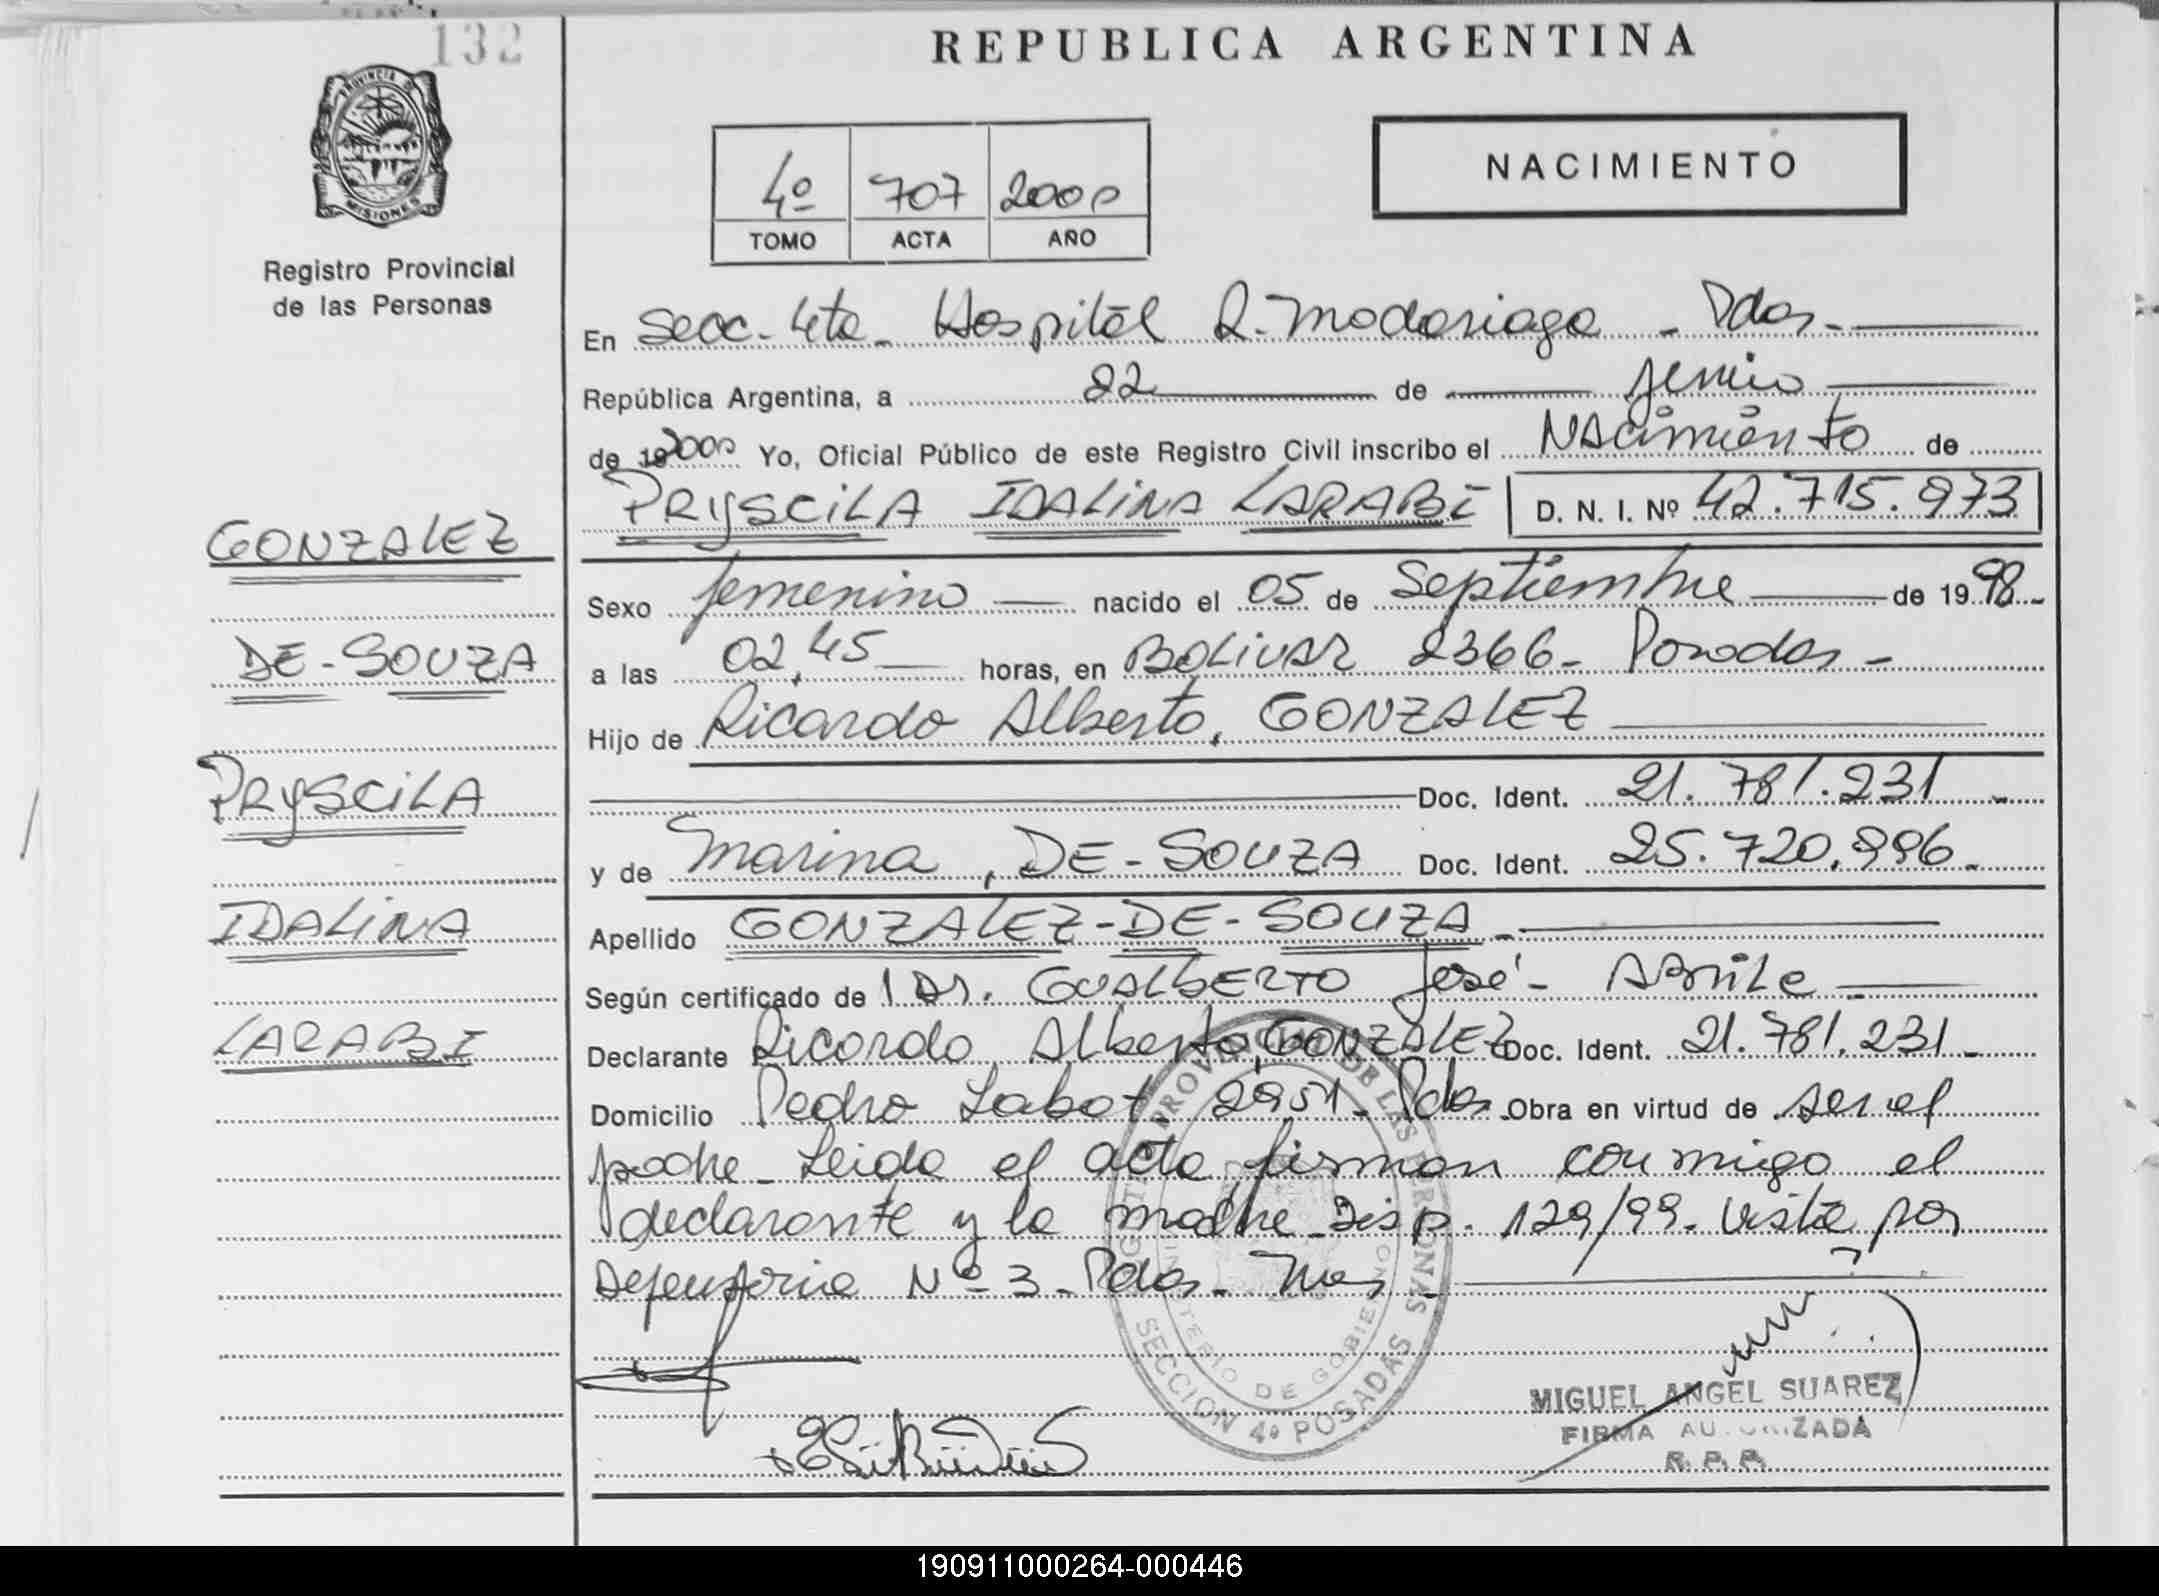 132
REPUBLICA ARGENTINA
PROVINCIA DE MISIONES
Registro Provincial
de las Personas
4º 707 2000
TOMO ACTA AÑO
NACIMIENTO
En Secc. 4ta_ Hospital R. Madariaga _ Pdas._
República Argentina, a 22 de junio
de 192000 Yo, Oficial Público de este Registro Civil inscribo el Nacimiento de
PRYSCILA IDALINA LARABI D. N. I. Nº 42.715.973
Sexo femenino nacido el 05 de Septiembre de 1998._
a las 02,45 horas, en BOLIVAR 2366_ Posadas_
Hijo de Ricardo Alberto, GONZALEZ
Doc. Ident. 21.781.231_
y de Marina, DE-SOUZA Doc. Ident. 25.720.996_
Apellido GONZALEZ-DE-SOUZA_
Según certificado de Dr. GUALBERTO José_ ABRILE
Declarante Ricardo Alberto, GONZALEZ Doc. Ident. 21.781.231_
Domicilio Pedro Labat 2951_ Pdas. Obra en virtud de ser el
padre_ Leida el acta firman conmigo el
declarante y la madre_ Disp. 129/99_ Vista por
Defensoria Nº 3_ Pdas._ Mes_
GONZALEZ
DE-SOUZA
PRYSCILA
IDALINA
LARABI
MINISTERIO DE GOBIERNO
SECCION 4º POSADAS
MIGUEL ANGEL SUAREZ
FIRMA AUTORIZADA
R. P. P.
190911000264-000446